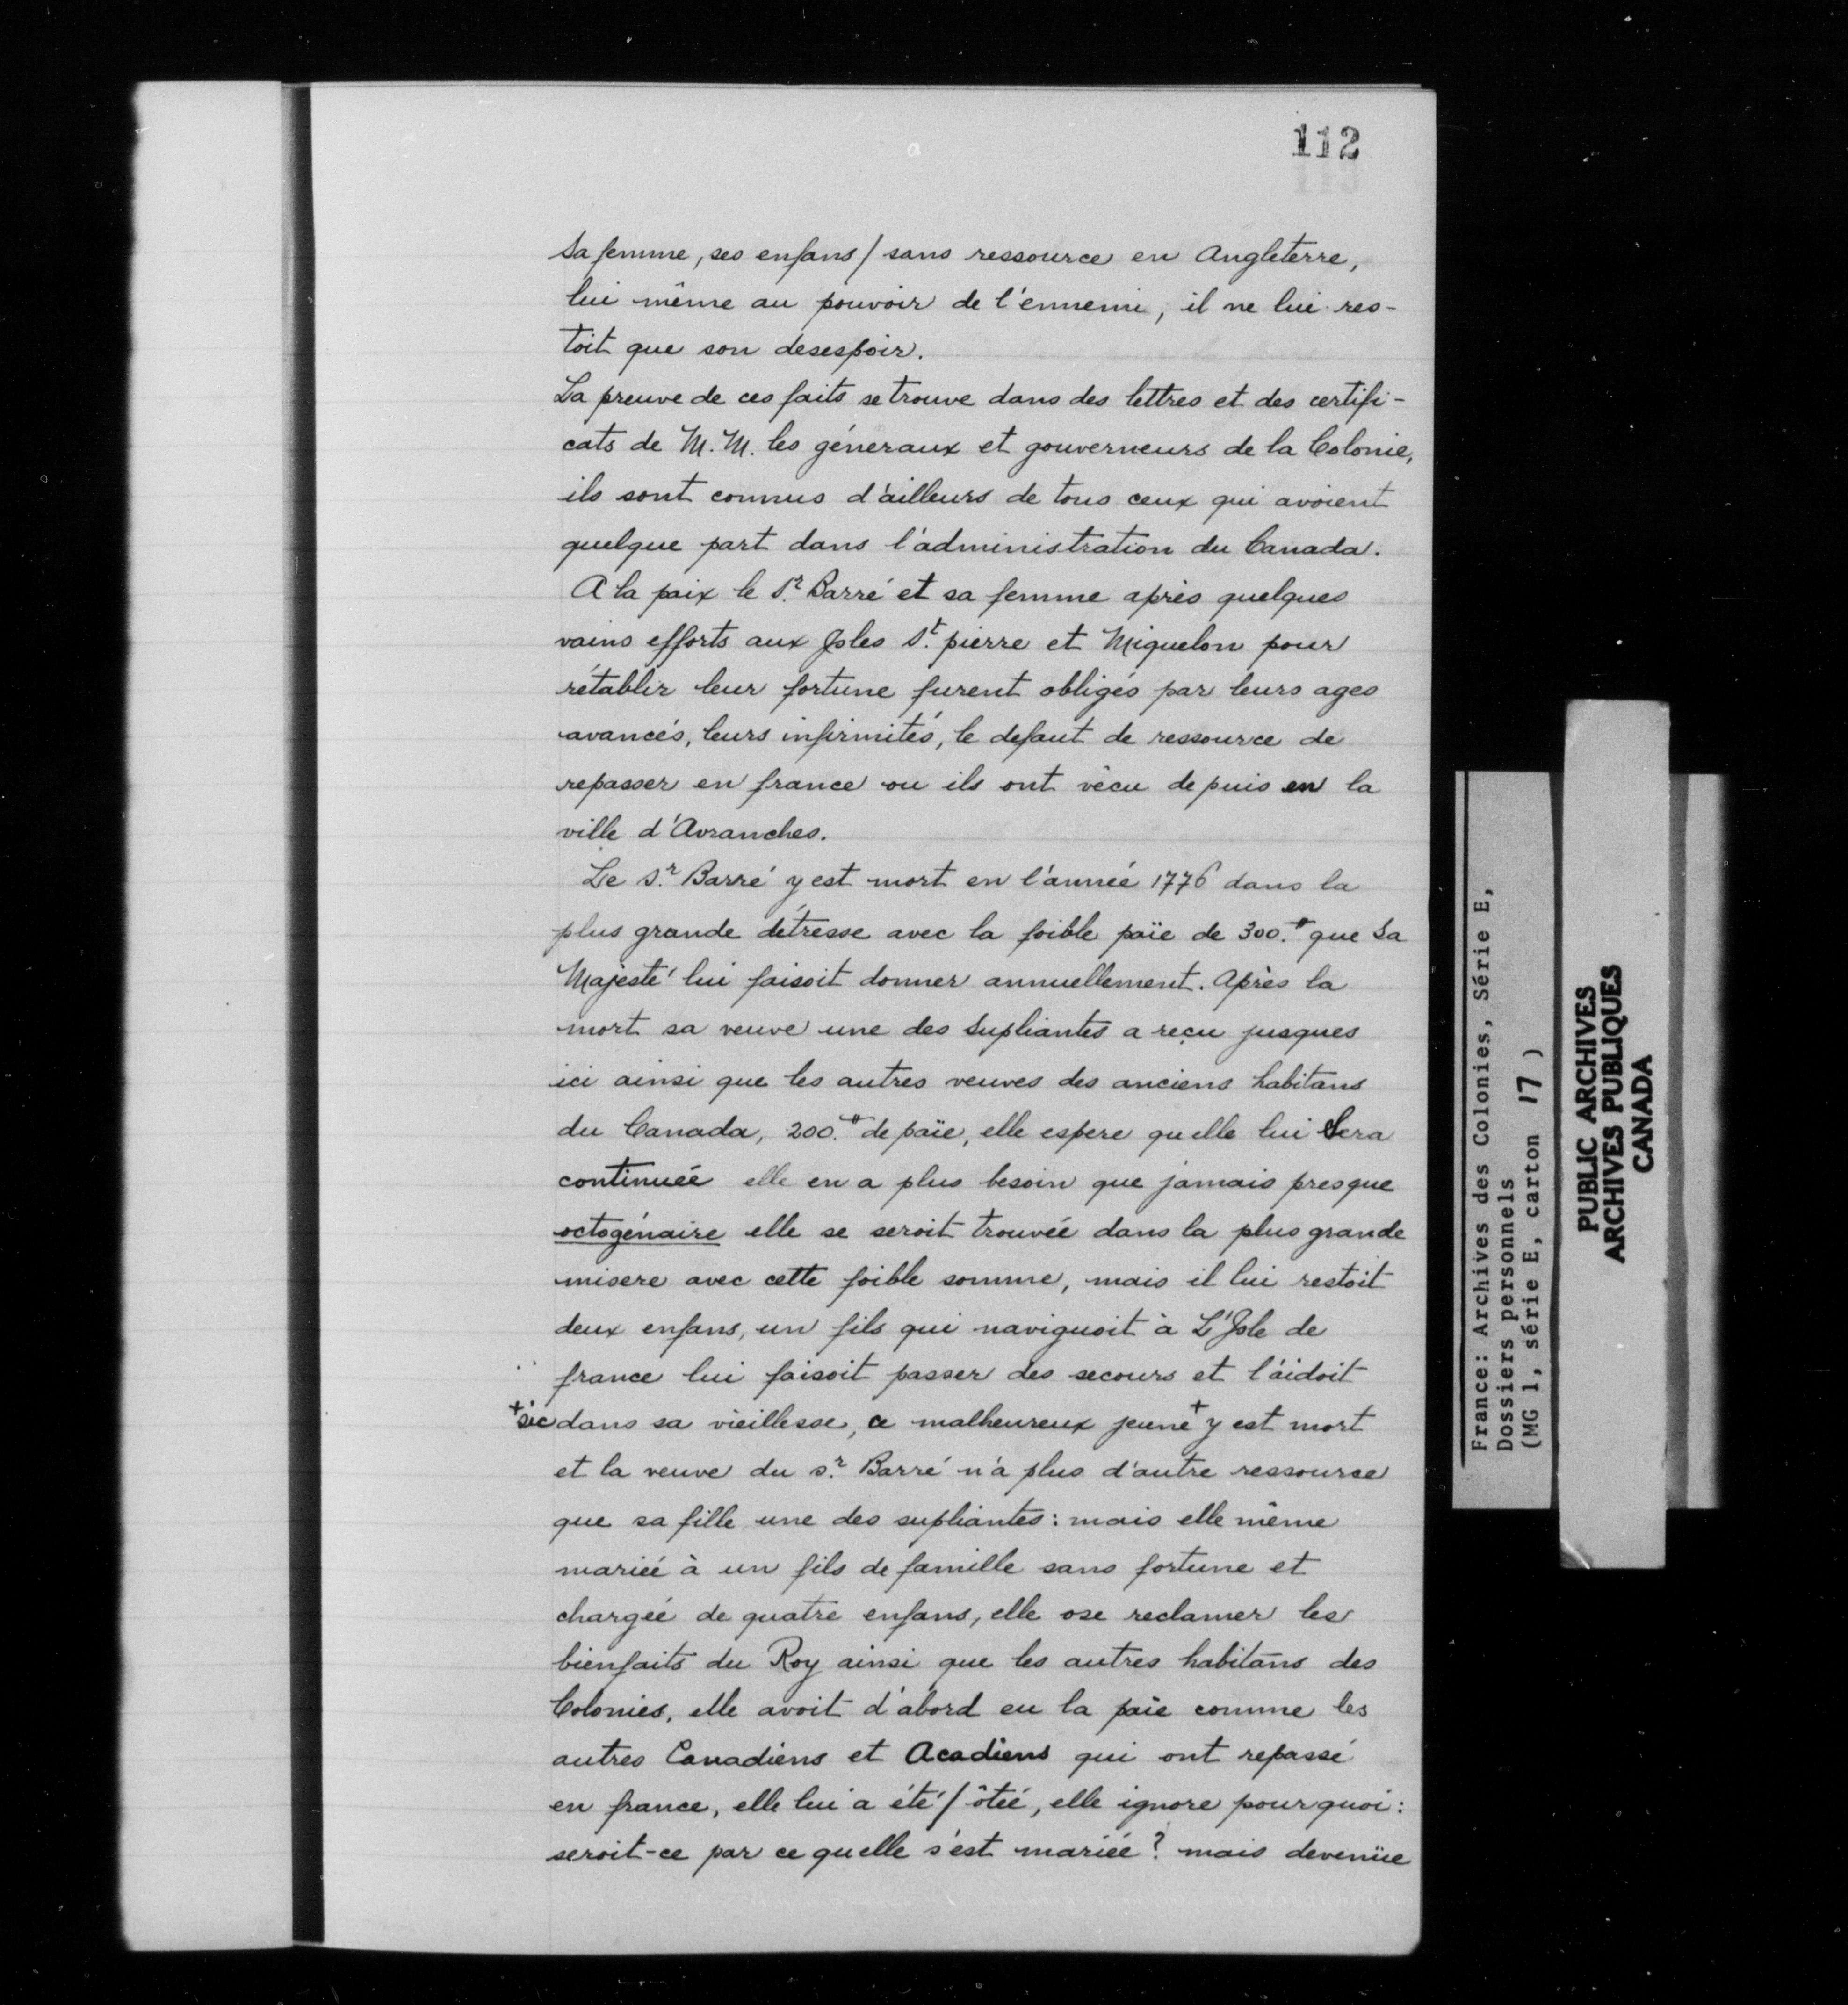 112
Sa femme, ses enfans / sans ressource en Angleterre,
lui même au pouvoir de l'ennemi, il ne lui res-
toit que son desespoir.
La preuve de ces faits se trouve dans des lettres et des certifi-
cats de M. M. les géneraux et gouverneurs de la Colonie,
ils sont connus d'ailleurs de tous ceux qui avoient
quelque part dans l'administration du Canada.
A la paix le Sr. Barré et sa femme après quelques
vains efforts aux Isles St. pierre et Miquelon pour
rétablir leur fortune furent obligés par leurs ages
avancés, leurs infirmités, le defaut de ressource de
repasser en france ou ils ont vécu depuis en la
ville d'Avranches.
Le Sr. Barré y est mort en l'année 1776 dans la
plus grande détresse avec la foible païe de 300.# que Sa
Majesté lui faisoit donner annuellement. Après la
mort sa veuve une des Supliantes a reçu jusques
ici ainsi que les autres veuves des anciens habitans
du Canada, 200.# de païe, elle espere quelle lui Sera
continuée elle en a plus besoin que jamais presque
octogénaire elle se seroit trouvée dans la plus grande
misere avec cette foible somme, mais il lui restoit
deux enfans, un fils qui naviguoit à L'Isle de
france lui faisoit passer des secours et l'aidoit
+sic dans sa vieillesse, ce malheureux jeune + y est mort
et la veuve du Sr. Barré n'a plus d'autre ressource
que sa fille une des supliantes : mais elle même
mariée à un fils de famille sans fortune et
chargée de quatre enfans, elle ose reclamer les
bienfaits du Roy ainsi que les autres habitans des
Colonies, elle avoit d'abord eu la païe comme les
autres Canadiens et Acadiens qui ont repassé
en france, elle lui a été / ôtée, elle ignore pourquoi :
seroit-ce par ce quelle s'est mariée ? mais devenüe
France: Archives des Colonies, Série E,
Dossiers personnels
(MG 1, série E, carton 17 )
PUBLIC ARCHIVES
ARCHIVES PUBLIQUES
CANADA